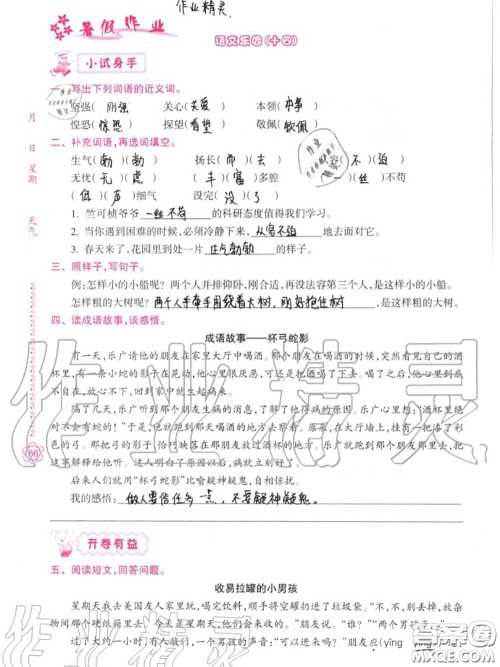 作业精灵
暑假作业
语文乐园(十四)
小试身手
一、写出下列词语的近义词。
坚强( 刚强 ) 关心( 关爱 ) 本领( 本事 )
惶恐( 惊恐 ) 探望( 看望 ) 敬佩( 钦佩 )
二、补充词语,再选词填空。
生气( 勃 )( 勃 ) 扬长( 而 )( 去 ) ( 容 )不( 迫 )
无忧( 无 )( 虑 ) ( 丰 )( 富 )多彩 ( 一 )( 丝 )不苟
( 低 )( 声 )细气 没完( 没 )( 了 )
1. 竺可桢爷爷 一丝不苟 的科研态度值得我们学习。
2. 当你遇到困难的时候,必须冷静下来, 从容不迫 地去面对它。
3. 春天来了,花园里到处一片 生气勃勃 的样子。
三、照样子,写句子。
例:怎样小的小船呢?两个人并排仰卧,刚合适,再没法容第三个人,是这样小的小船。
怎样粗的大树呢? 两个人手牵手围绕着大树,刚好抱住树 ,是这样粗的大树。
四、读成语故事,谈感悟。
成语故事——杯弓蛇影
有一天,乐广请他的朋友在家里大厅中喝酒。那个朋友在喝酒的时候,突然看见自己的酒杯
里,有一条小蛇的影子在晃动,他心里很厌恶,可还是喝了那杯酒。喝了之后,心里到底不自在,放心
不下,回到家中就生起病来。
隔了几天,乐广听到那个朋友生病的消息,了解了他得病的原因。乐广心里想:“酒杯里绝
对不会有蛇的!”于是,他就跑到那天喝酒的地方去察看。原来,在大厅墙上,挂有一把漆了彩
色的弓。那把弓的影子,恰巧映落在那朋友放过酒杯的地方。乐广就跑到那个朋友那里去,把这
事解释给他听。这人明白了原因以后,病就好了。
后来人们就用“杯弓蛇影”比喻疑神疑鬼,自相惊扰。
我的感悟: 做人要信任多一点,不要疑神疑鬼。
开卷有益
五、阅读短文,回答问题。
收易拉罐的小男孩
星期天我去美国友人家里玩,喝完饮料,顺手将空罐扔进了垃圾袋。“不,别丢掉,放在
过了大约一小时,一个男孩的声音:“可以进来吗?”朋友应(yīng
月 日 星期 天气
66